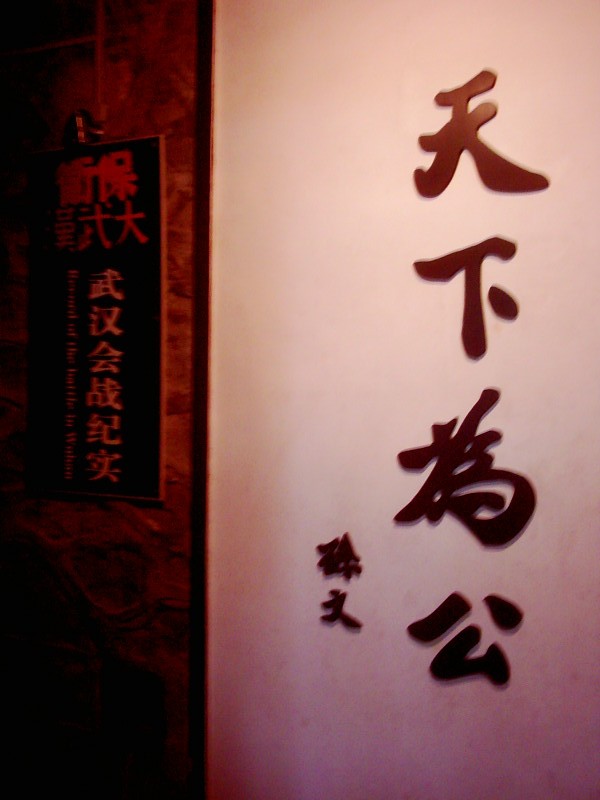 保衛
大武漢
武汉会战纪实
Record of the battle in Wuhan
天下為公
孫文